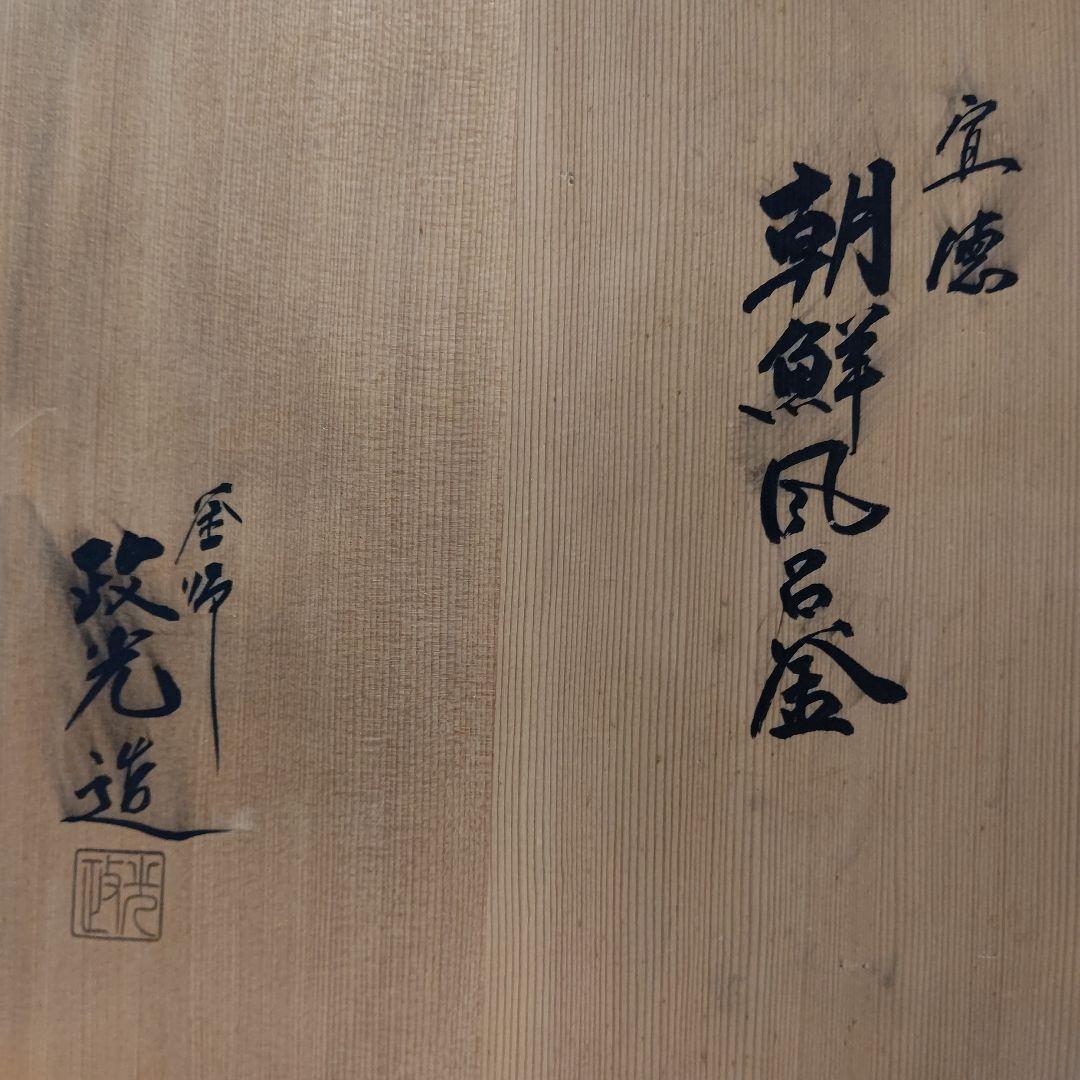 宣徳
朝鮮風呂釜
釜師
政光造
政光